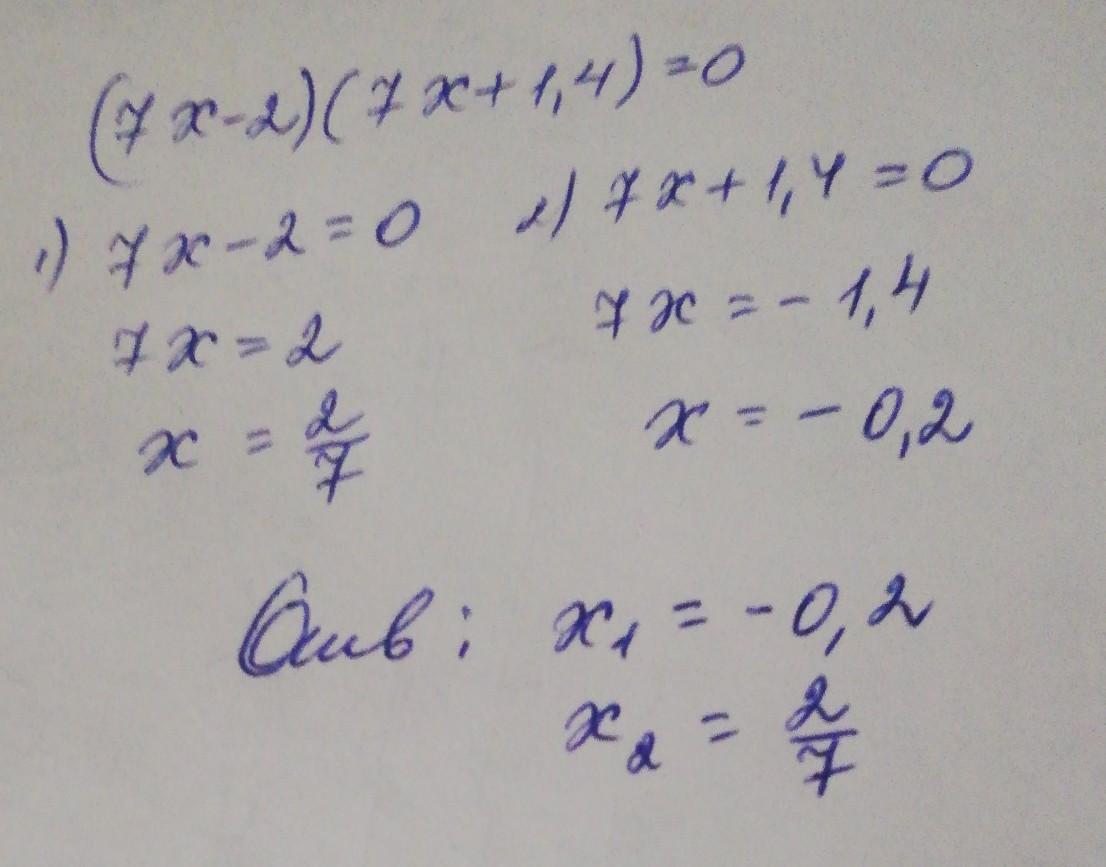 (7x-2)(7x+1,4)=0
1) 7x-2=0 2) 7x+1,4=0
7x=2 7x=-1,4
x=2/7 x=-0,2
Отв: x₁=-0,2
x₂=2/7